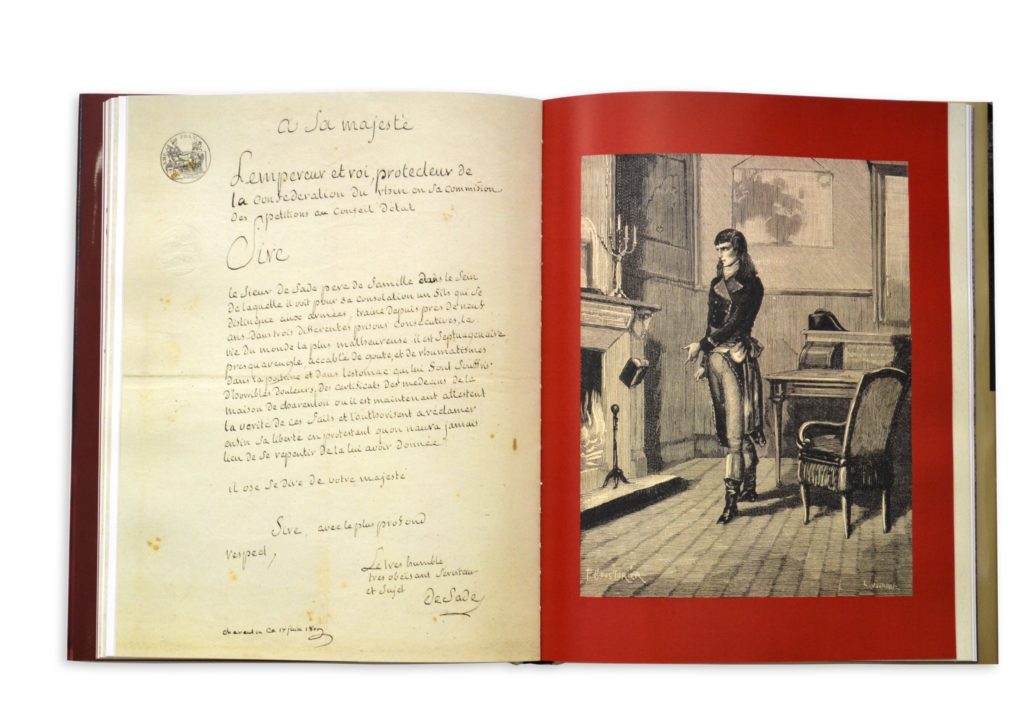 a Sa majesté
Lempereur et roi, protecteur de
la confederation du rhin en sa commission
des petitions au Conseil détat
Sire
le Sieur de Sade pere de famille dans le Sein
de laquelle il voit pour sa consolation un fils qui se
distingue aux armées, traine depuis près de neuf
ans dans trois differentes prisons consécutives, la
vie du monde la plus malheureuse il est Septuagenaire
presqu'aveugle, accablé de goute, et de rhumatismes
dans la poitrine et dans lestomac qui lui font Souffrir
d'horribles douleurs, des certificats des medecins de la
maison de charenton ou il est maintenant attestent
la verité de ces faits et l'authorisent a réclamer
enfin Sa liberté en protestant quon naura jamais
lieu de Se repentir de la lui avoir donnée
il ose Se dire de votre majesté
Sire, avec le plus profond
respect,
Le tres humble
tres obeissant Serviteur
et Sujet
de Sade
charenton Ce 17 juin